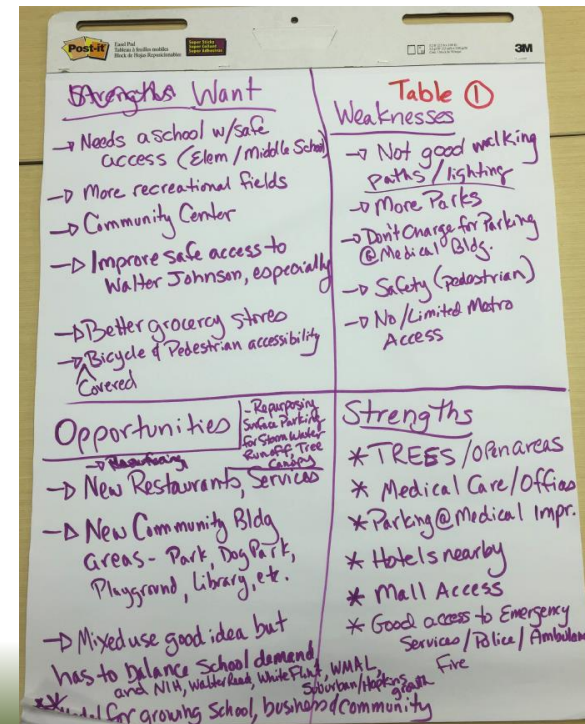 Post-it
Easel Pad
Tableau à feuilles mobiles
Block de Hojas Reposicionables
Super Sticky
3M
Strengths Want
→ Needs a school w/safe
access (Elem/Middle School)
→ More recreational fields
→ Community Center
→ Improve safe access to
Walter Johnson, especially
→ Better grocercy stores
→ Bicycle & Pedestrian accessibility
Covered
Table ①
Weaknesses
→ Not good walking
paths/lighting
→ More Parks
→ Don't Charge for Parking
@ Medical Bldg.
→ Safety (pedestrian)
→ No/Limited Metro
Access
Opportunities
- Repurposing
Surface Parking
for Storm Water
Runoff, Tree
Canopy
→ New Restaurants, Services
→ New Community Bldg
areas - Park, Dog Park,
Playground, Library, etc.
→ Mixed use good idea but
has to balance school demand
and NIH, Walter Reed, White Flint, WMAL,
Suburban/Hopkins growth
for growing school, business & community
Strengths
* TREES/Open areas
* Medical Care/Offices
* Parking @ Medical Impr.
* Hotels nearby
* Mall Access
* Good access to Emergency
Services/Police/Ambulance
Fire